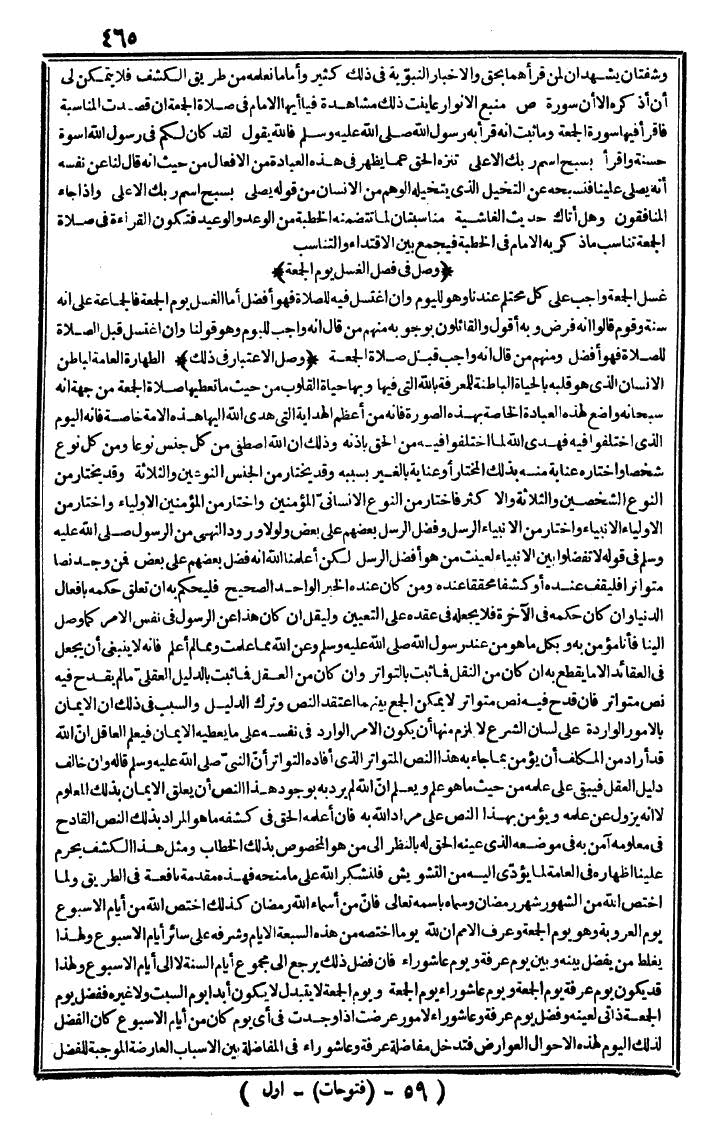 ٤٦٥
وشفتان يشهدان لمن قرأهما بحق والاخبار النبوية فى ذلك كثير وأما ما نعلمه من طريق الكشف فلا يتمكن لى
أن أذكره الا أن سورة ص منبع الانوار عاينت ذلك مشاهدة فيا أيها الامام فى صلاة الجمعة ان قصدت المناسبة
فاقرأ فيها سورة الجمعة وما ثبت انه قرأ به رسول الله صلى الله عليه وسلم فالله يقول لقد كان لكم فى رسول الله اسوة
حسنة واقرأ بسبح اسم ربك الاعلى تنزه الحق عما يظهر فى هذه العبادة من الافعال من حيث انه قال لنا عن نفسه
أنه يصلى علينا فنسبحه عن التخيل الذى يتخيله الوهم من الانسان من قوله يصلى بسبح اسم ربك الاعلى واذا جاء
المنافقون وهل أتاك حديث الغاشية مناسبتان لما تتضمنه الخطبة من الوعد والوعيد فتكون القراءة فى صلاة
الجمعة تناسب ماذكر به الامام فى الخطبة فيجمع بين الاقتداء والتناسب
﴿وصل فى فصل الغسل يوم الجمعة﴾
غسل الجمعة واجب على كل محتلم عندنا وهو لليوم وان اغتسل فيه للصلاة فهو أفضل أما الغسل يوم الجمعة فالجماعة على انه
سنة وقوم قالوا انه فرض وبه أقول والقائلون بوجوبه منهم من قال انه واجب لليوم وهو قولنا وان اغتسل قبل الصلاة
للصلاة فهو أفضل ومنهم من قال انه واجب قبل صلاة الجمعة ﴿وصل الاعتبار فى ذلك﴾ الطهارة العامة لباطن
الانسان الذى هو قلبه بالحياة الباطنة للمعرفة بالله التى فيها وبها حياة القلوب من حيث ما تعطيها صلاة الجمعة من جهة انه
سبحانه واضع لهذه العبادة الخاصة بهذه الصورة فانه من أعظم الهداية التى هدى الله اليها هذه الامة خاصة فانه اليوم
الذى اختلفوا فيه فهدى الله لما اختلفوا فيه من الحق باذنه وذلك ان الله اصطفى من كل جنس نوعا ومن كل نوع
شخصا واختاره عناية منه بذلك المختار أو عناية بالغير بسببه وقد يختار من الجنس النوعين والثلاثة وقد يختار من
النوع الشخصين والثلاثة والاكثر فاختار من النوع الانسانى المؤمنين واختار من المؤمنين الاولياء واختار من
الاولياء الانبياء واختار من الانبياء الرسل وفضل الرسل بعضهم على بعض ولولا ورود النهى من الرسول صلى الله عليه
وسلم فى قوله لا تفضلوا بين الانبياء لعينت من هو أفضل الرسل لكن أعلمنا الله انه فضل بعضهم على بعض فمن وجد نصا
متواترا فليقف عنده أو كشفا محققا عنده ومن كان عنده الخبر الواحد الصحيح فليحكم به ان تعلق حكمه بافعال
الدنيا وان كان حكمه فى الآخرة فلا يجعله فى عقده على التعيين وليقل ان كان هذا عن الرسول فى نفس الامر كما وصل
الينا فأنا مؤمن به وبكل ماهو من عند رسول الله صلى الله عليه وسلم وعن الله مما علمت ومما لم أعلم فانه لا ينبغى أن يجعل
فى العقائد الا ما يقطع به ان كان من النقل فما ثبت بالتواتر وان كان من العقل فما ثبت بالدليل العقلى ما لم يقدح فيه
نص متواتر فان قدح فيه نص متواتر لا يمكن الجمع بينهما اعتقد النص وترك الدليل والسبب فى ذلك ان الايمان
بالامور الواردة على لسان الشرع لا يلزم منها أن يكون الامر الوارد فى نفسه على ما يعطيه الايمان فيعلم العاقل ان الله
قد أراد من المكلف أن يؤمن بما جاء به هذا النص المتواتر الذى أفاده التواتر أن النبى صلى الله عليه وسلم قاله وان خالف
دليل العقل فيبقى على علمه من حيث ما هو علم ويعلم ان الله لم يرد به بوجود هذا النص أن يعلق الايمان بذلك المعلوم
لا انه يزول عن علمه ويؤمن بهذا النص على مراد الله به فان أعلمه الحق فى كشفه ما هو المراد بذلك النص القادح
فى معلومه آمن به فى موضعه الذى عينه الحق له بالنظر الى من هو المخصوص بذلك الخطاب ومثل هذا الكشف يحرم
علينا اظهاره فى العامة لما يؤدى اليه من التشويش فلنشكر الله على ما منحه فهذه مقدمة نافعة فى الطريق ولما
اختص الله من الشهور شهر رمضان وسماه باسمه تعالى فان من أسماء الله رمضان كذلك اختص الله من أيام الاسبوع
يوم العروبة وهو يوم الجمعة وعرف الامم ان لله يوما اختصه من هذه السبعة الايام وشرفه على سائر أيام الاسبوع ولهذا
يغلط من يفضل بينه وبين يوم عرفة ويوم عاشوراء فان فضل ذلك يرجع الى مجموع أيام السنة لا الى أيام الاسبوع ولهذا
قد يكون يوم عرفة يوم الجمعة ويوم عاشوراء يوم الجمعة ويوم الجمعة لا يتبدل لا يكون أبدا يوم السبت ولا غيره ففضل يوم
الجمعة ذاتى لعينه وفضل يوم عرفة وعاشوراء لامور عرضت اذا وجدت فى أى يوم كان من أيام الاسبوع كان الفضل
لذلك اليوم لهذه الاحوال العوارض فتدخل مفاضلة عرفة وعاشوراء فى المفاضلة بين الاسباب العارضة الموجبة للفضل
( ٥٩ - (فتوحات) - اول )